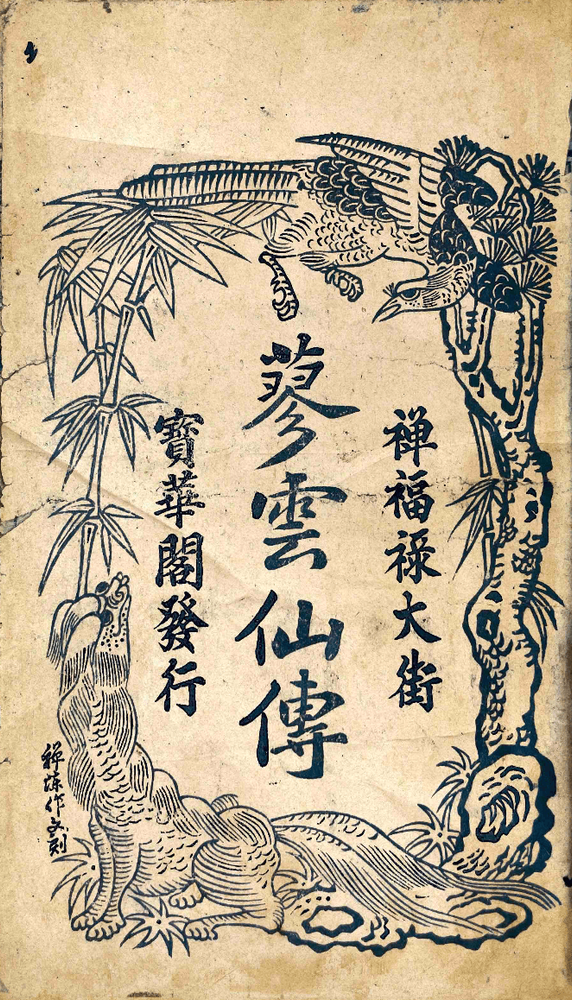 禅福禄大街
蓼雲仙傳
寶華閣發行
作文刻